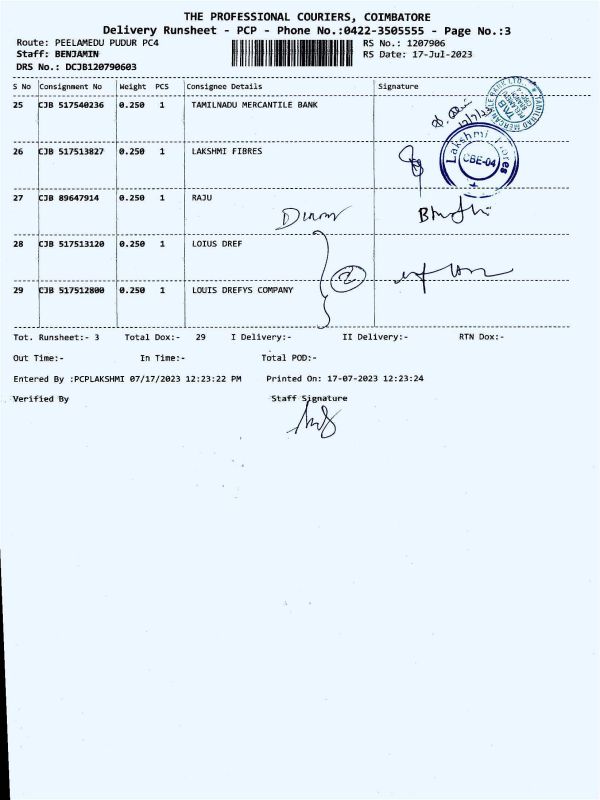 THE PROFESSIONAL COURIERS, COIMBATORE
Delivery Runsheet - PCP - Phone No.:0422-3505555 - Page No.:3
Route: PEELAMEDU PUDUR PC4 RS No.: 1207906
Staff: BENJAMIN RS Date: 17-Jul-2023
DRS No.: DCJB120790603
S No Consignment No Weight PCS Consignee Details Signature
25 CJB 517540236 0.250 1 TAMILNADU MERCANTILE BANK
26 CJB 517513827 0.250 1 LAKSHMI FIBRES
Lakshmi Fibres
CBE-04
27 CJB 89647914 0.250 1 RAJU
28 CJB 517513120 0.250 1 LOIUS DREF
2
29 CJB 517512800 0.250 1 LOUIS DREFYS COMPANY
Tot. Runsheet:- 3 Total Dox:- 29 I Delivery:- II Delivery:- RTN Dox:-
Out Time:- In Time:- Total POD:-
Entered By :PCPLAKSHMI 07/17/2023 12:23:22 PM Printed On: 17-07-2023 12:23:24
Verified By Staff Signature